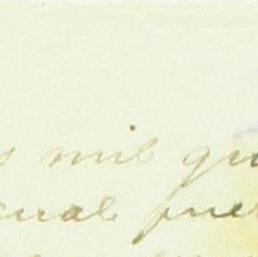 s mil qui
cual fue